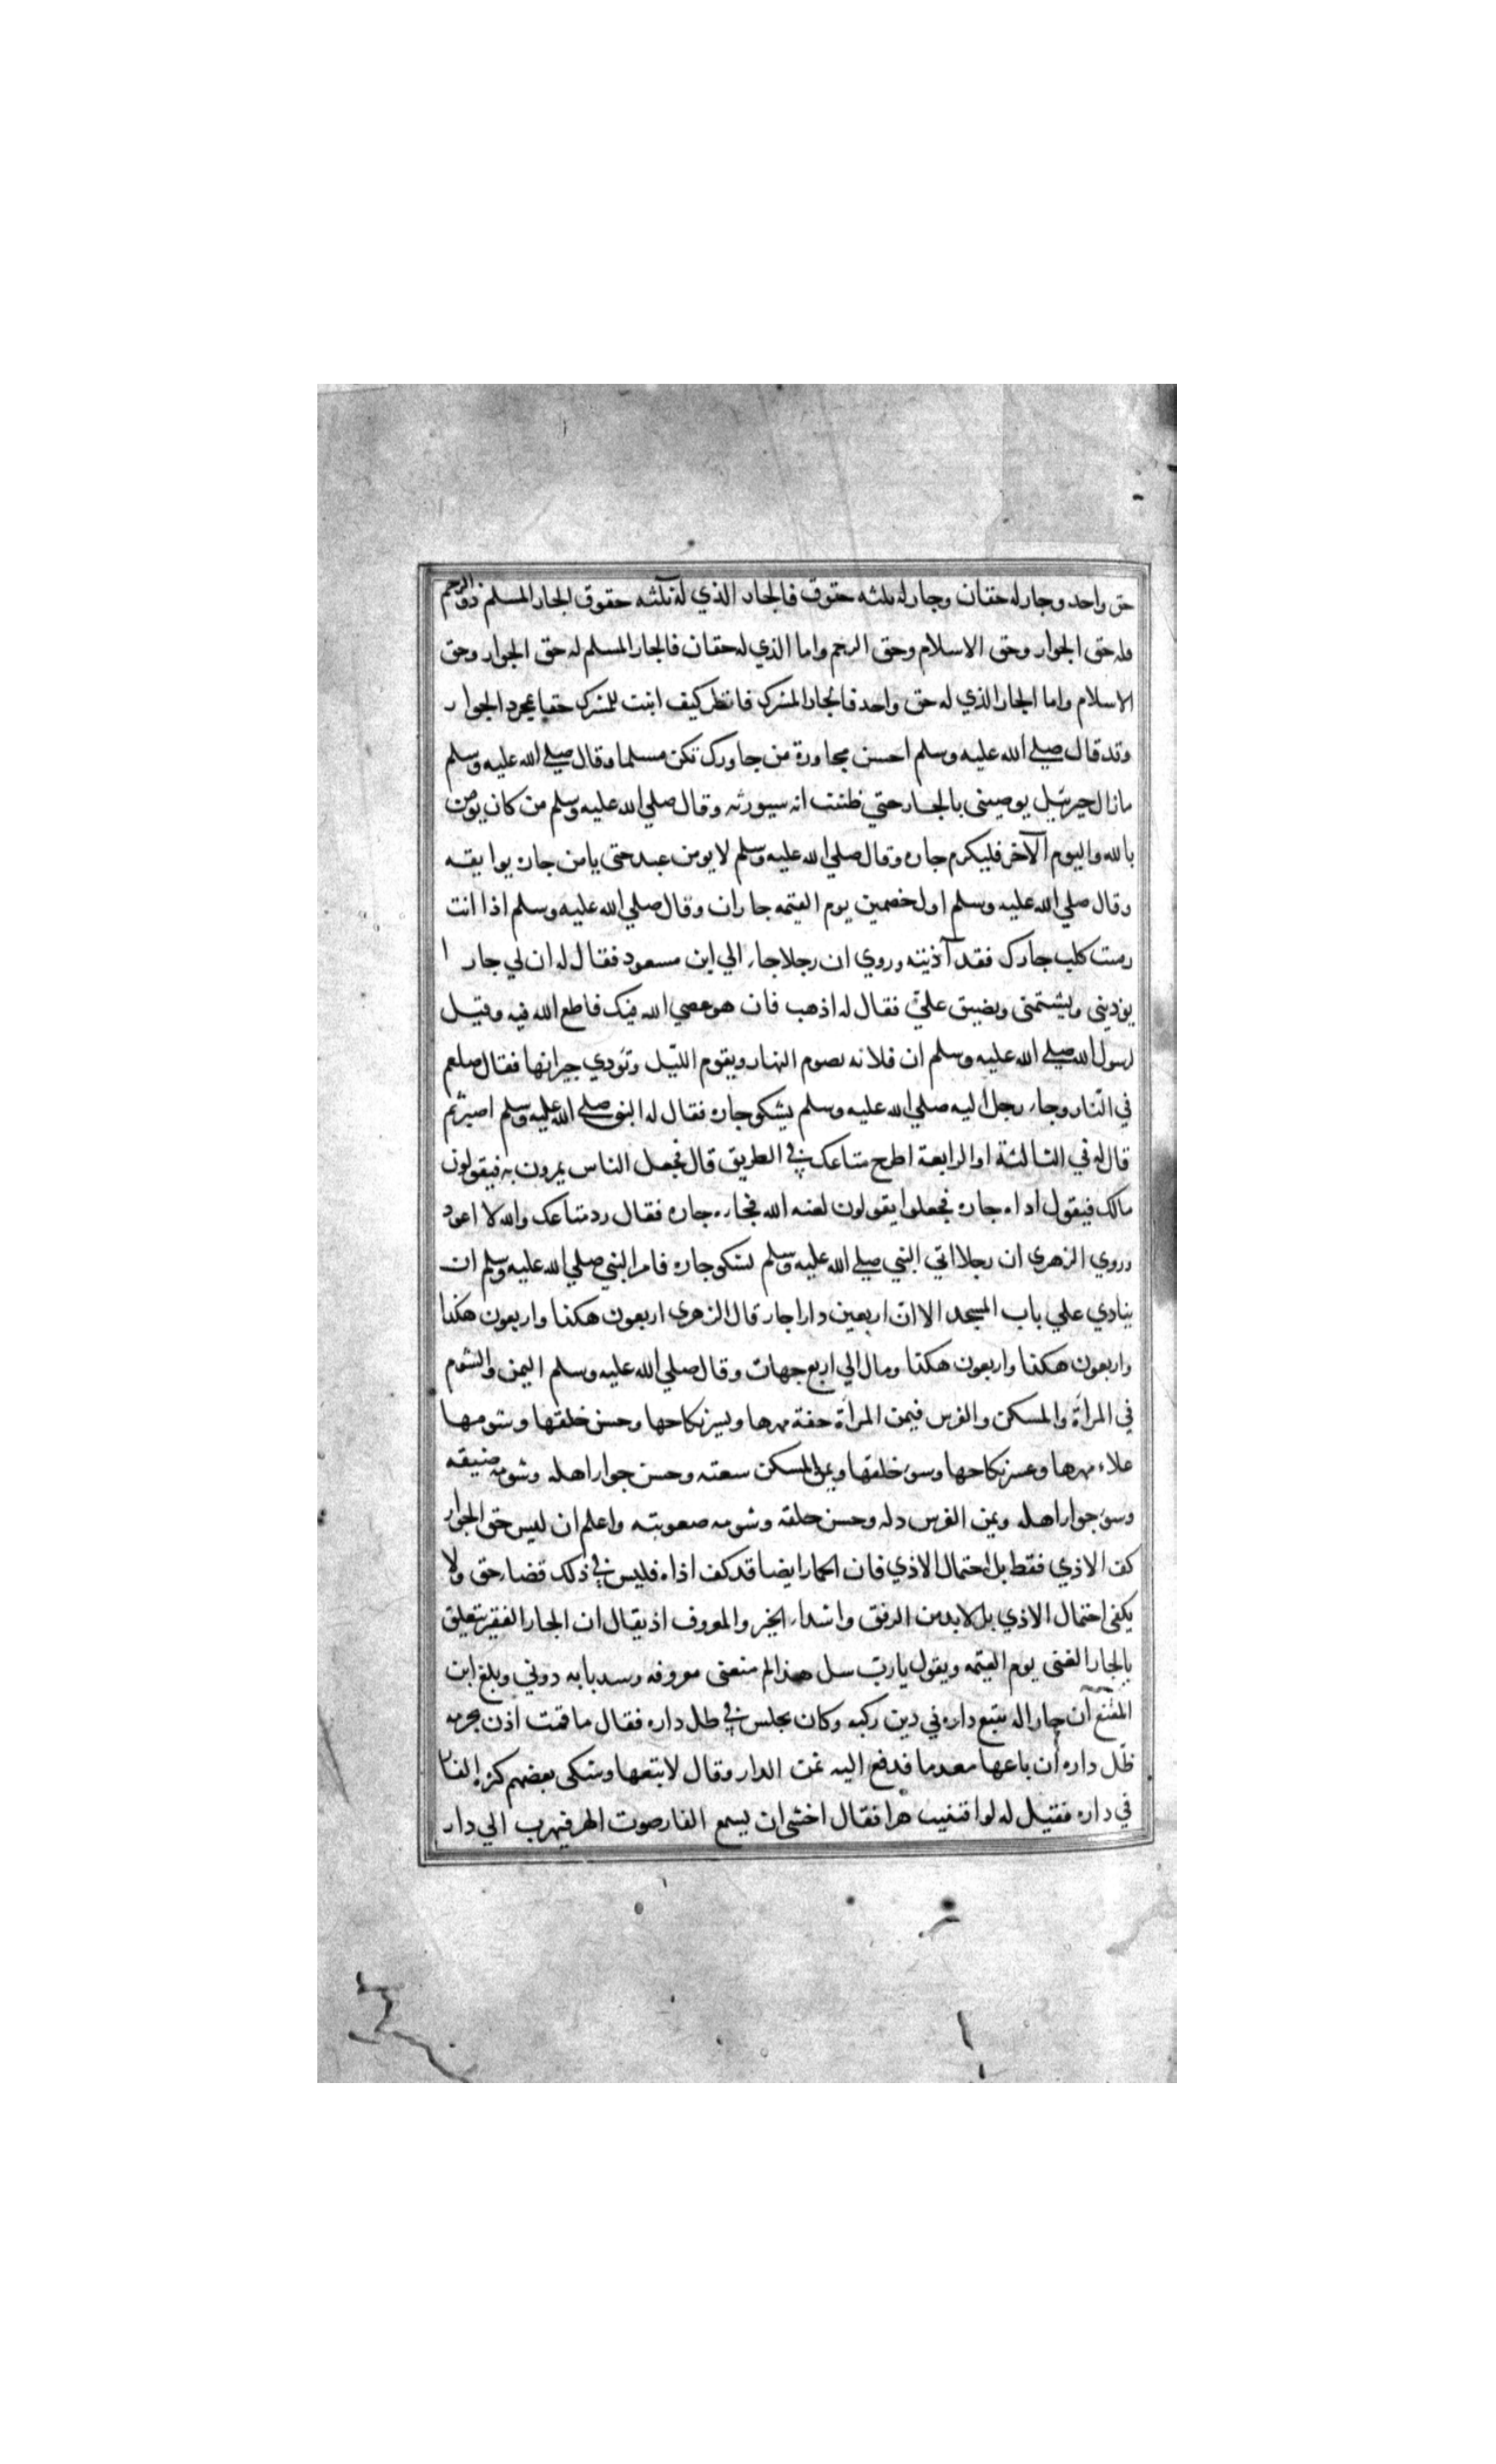 حق واحد وجار له حقان وجار له ثلثه حقوق فالجار الذي له ثلثه حقوق الجار المسلم ذو الرحم
فله حق الجوار وحق الاسلام وحق الرحم واما الذي له حقان فالجار المسلم له حق الجوار وحق
الاسلام واما الجار الذي له حق واحد فالجار المشرك فانظر كيف اثبت للمشرك حقا بمجرد الجوار
وقد قال صلي الله عليه وسلم احسن مجاورة من جاورك تكن مسلما وقال صلي الله عليه وسلم
مازال جبرئيل يوصيني بالجار حتي ظننت انه سيورثه وقال صلي الله عليه وسلم من كان يومن
بالله واليوم الآخر فليكرم جاره وقال صلي الله عليه وسلم لا يومن عبد حتى يامن جاره بوايقه
وقال صلي الله عليه وسلم اول خصمين يوم القيمه جاران وقال صلي الله عليه وسلم اذا انت
رميت كلب جارك فقد آذيته وروي ان رجلا جاء الي ابن مسعود فقال له ان لي جارا
يوذيني ويشتمني ويضيق عليّ فقال له اذهب فان هو عصي الله فيك فاطع الله فيه وقيل
لرسول الله صلي الله عليه وسلم ان فلانه تصوم النهار ويقوم الليل وتؤدي جيرانها فقال صلعم
في النار وجاء رجل اليه صلي الله عليه وسلم يشكو جاره فقال له النبي صلي الله عليه وسلم اصبر ثم
قال له في الثالثة او الرابعة اطرح متاعك في الطريق قال فجعل الناس يمرون به فيقولون
مالك فيقول اداه جاره فجعلوا يقولون لعنه الله فجاءه جاره فقال رد متاعك والله لا اعود
وروي الزهرى ان رجلا اتي النبي صلي الله عليه وسلم يشكى جاره فامر النبي صلي الله عليه وسلم ان
ينادي علي باب المسجد الا ان اربعين دارا جار قال الزهرى اربعون هكذا واربعون هكذا
واربعون هكذا واربعون هكذا ومال الي اربع جهات وقال صلي الله عليه وسلم اليمن والشوم
في المرأة والمسكن والفرس فيمن المرأة خفة مهرها ويسر نكاحها وحسن خلقها وشومها
غلاء مهرها وعسر نكاحها وسوء خلقها ويمن المسكن سعته وحسن جوار اهله وشومه ضيقه
وسوء جوار اهله ويمن الفرس ذله وحسن خلقه وشومه صعوبته واعلم ان ليس حق الجوار
كف الاذي فقط بل احتمال الاذي فان الجار ايضا قد كف اذاه فليس في ذلك قضاء حق ولا
يكفى احتمال الاذي بل لابد من الرفق واسداء الخير والمعروف اذ يقال ان الجار الفقير يتعلق
بالجار الغنى يوم القيمه ويقول يا ربّ سل هذا لم منعنى معروفه وسد بابه دوني وبلغ ابن
المقنع ان جارا له يبيع داره في دين ركبه وكان يجلس في ظل داره فقال ما قمت اذن بحرمه
ظل داره ان باعها معدما فدفع اليه ثمن الدار وقال لا تبعها وشكى بعضهم كثرة الفار
في داره فقيل له لو اقتنيت هرا فقال اخشى ان يسمع الفار صوت الهر فيهرب الي دار